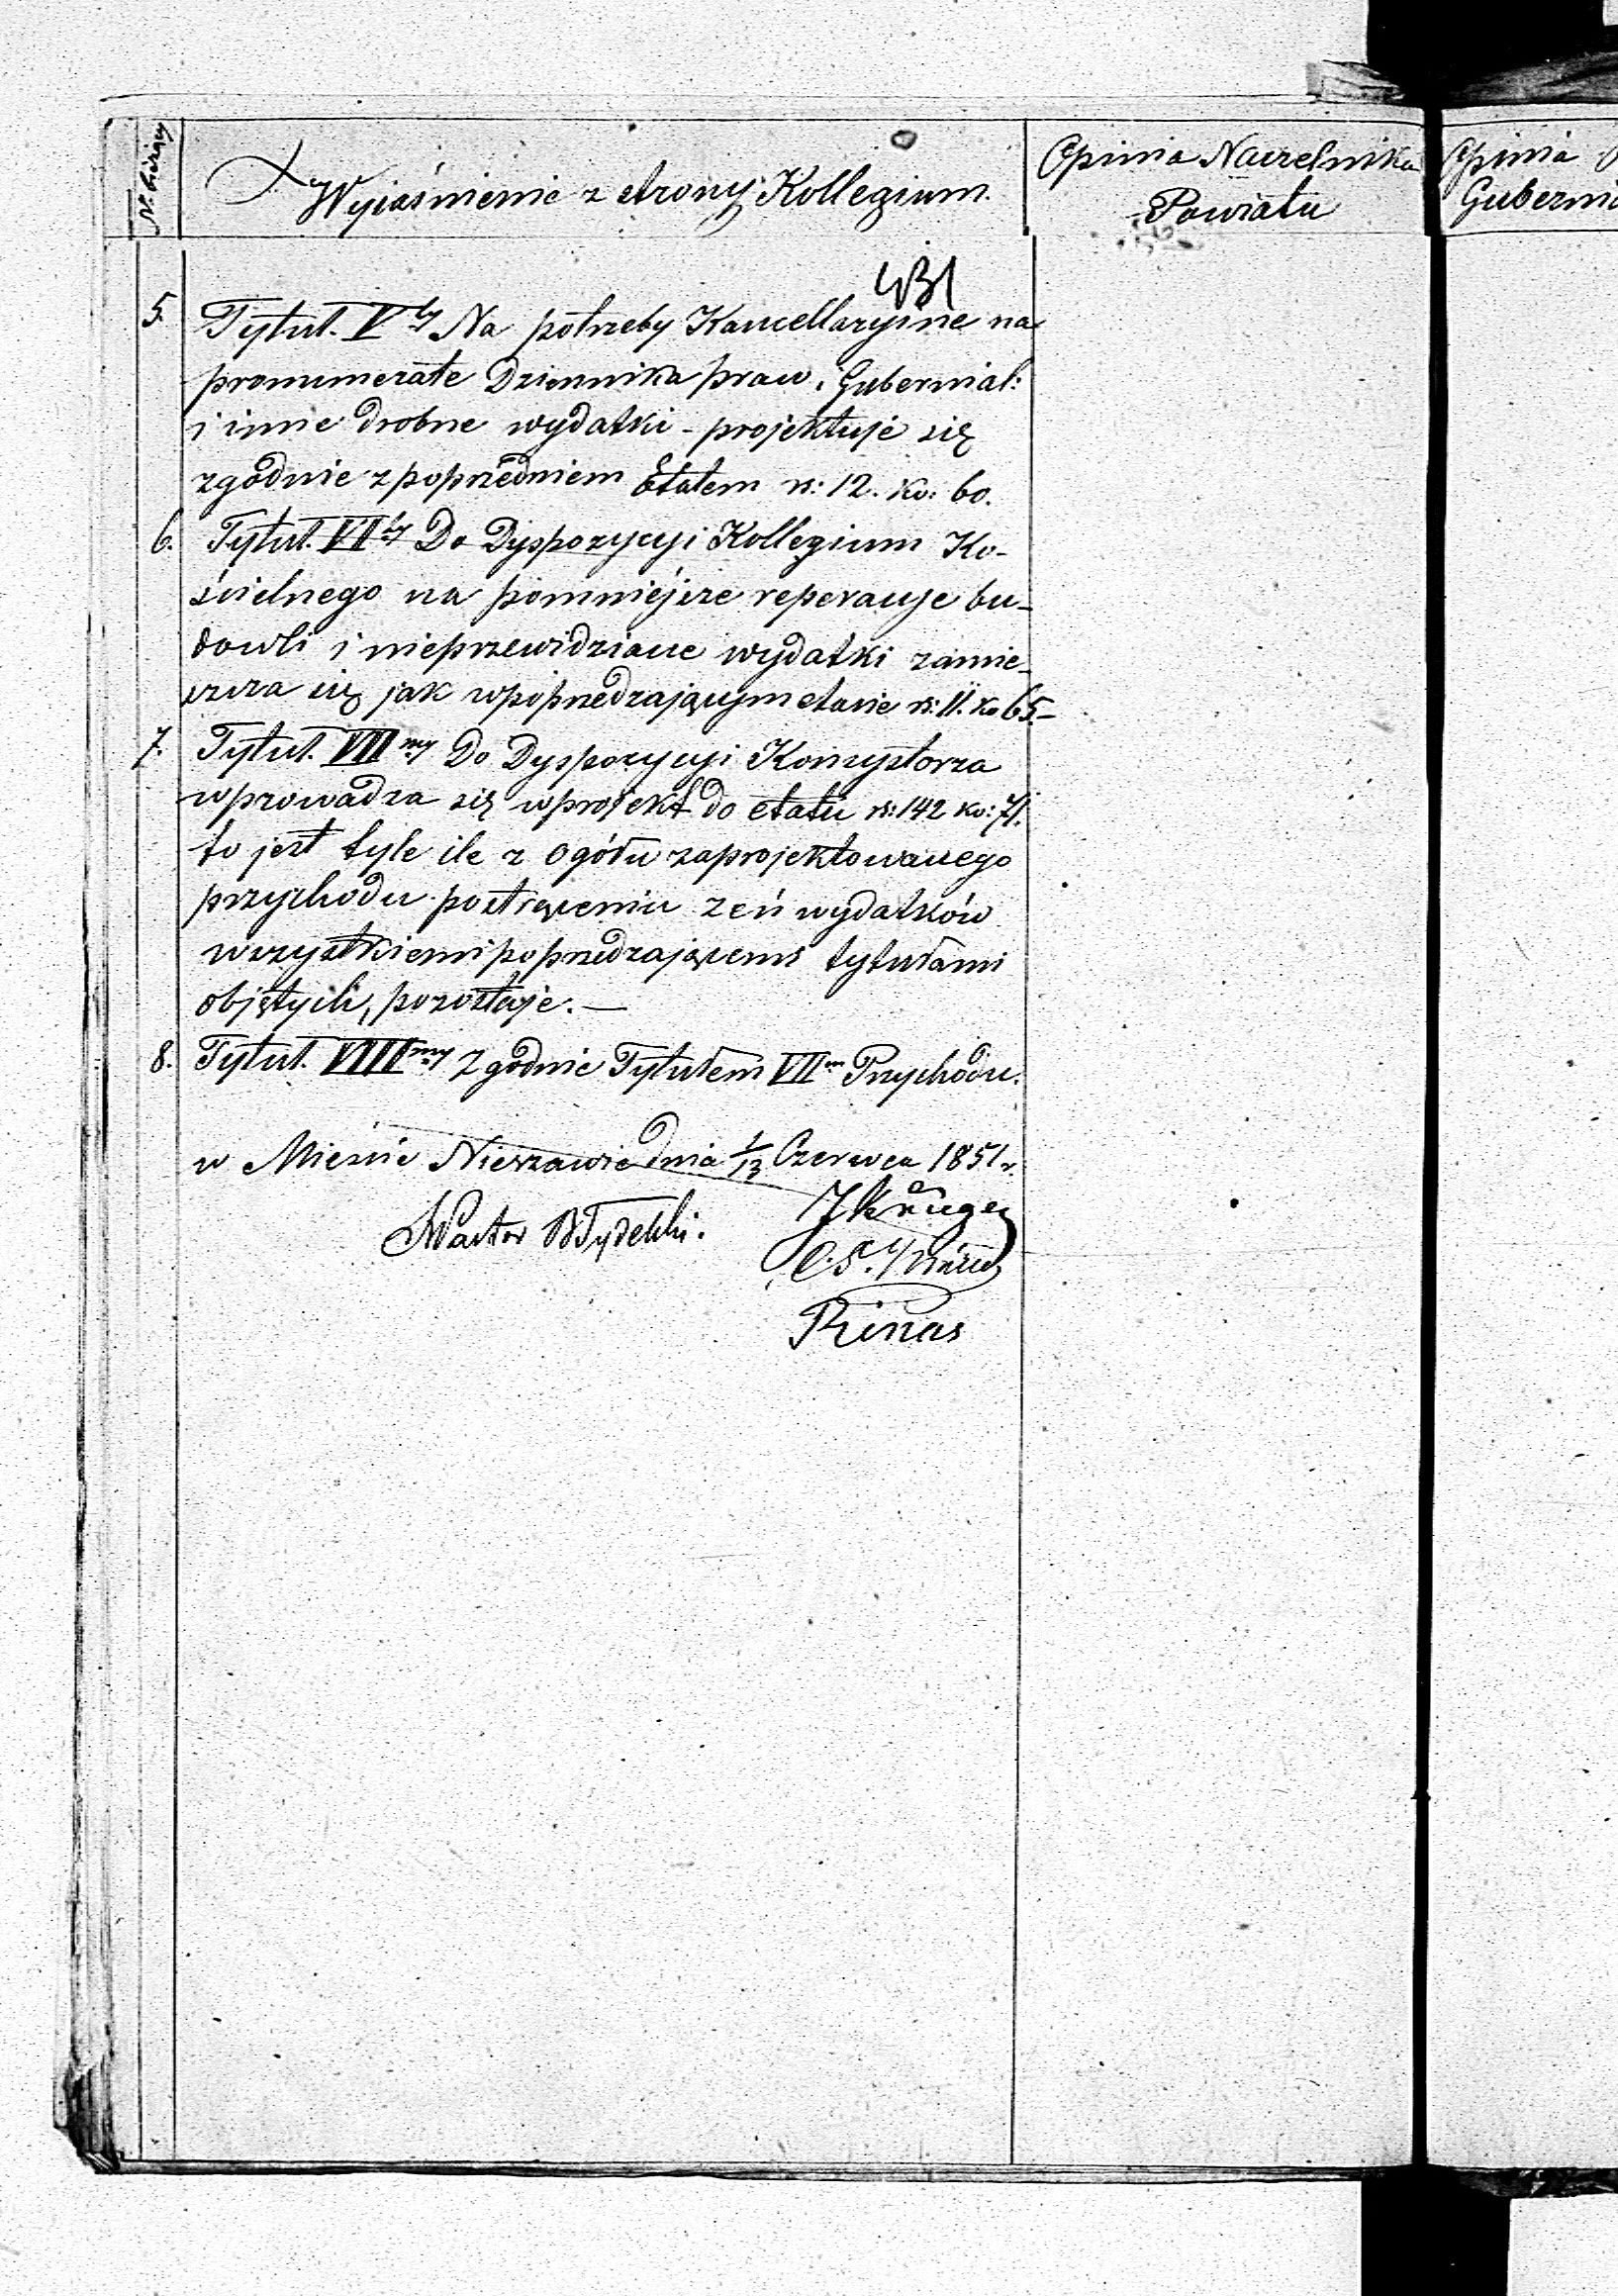 Nr. bieżący
Wyjaśnienie z strony Kollegium.
Opinia Naczelnika
Powiatu
Opinia
Guberni
5. Tytuł. V ty Na potrzeby Kancellaryjne na
pronumerate Dziennika praw, Gubernial:
i inne drobne wydatki - projektuje się
zgodnie z poprzedniem Etatem rs: 12. ko: 60.
6. Tytuł. VI ty Do Dyspozycyi Kollegium Ko-
ścielnego na pomniejsze reperacye bu-
dowli i nieprzewidziane wydatki zamie-
szcza się jak w poprzedzającym etacie rs: 11. ko 65.-
7. Tytuł. VII my Do Dyspozycyi Konsystorza
wprowadza się w projekt do etatu rs: 142 ko: 71.
to jest tyle ile z ogółu zaprojektowanego
przychodu po strąceniu zeń wydatków
wszystkiemi poprzedzającemi tytułami
objętych, pozostaje. —
8. Tytuł. VIII my Zgodnie Tytułem VII m Przychodu.
w Mieście Nieszawie dnia 1/13 Czerwca 1851 r.
JKrüger
Pastor
Rinas